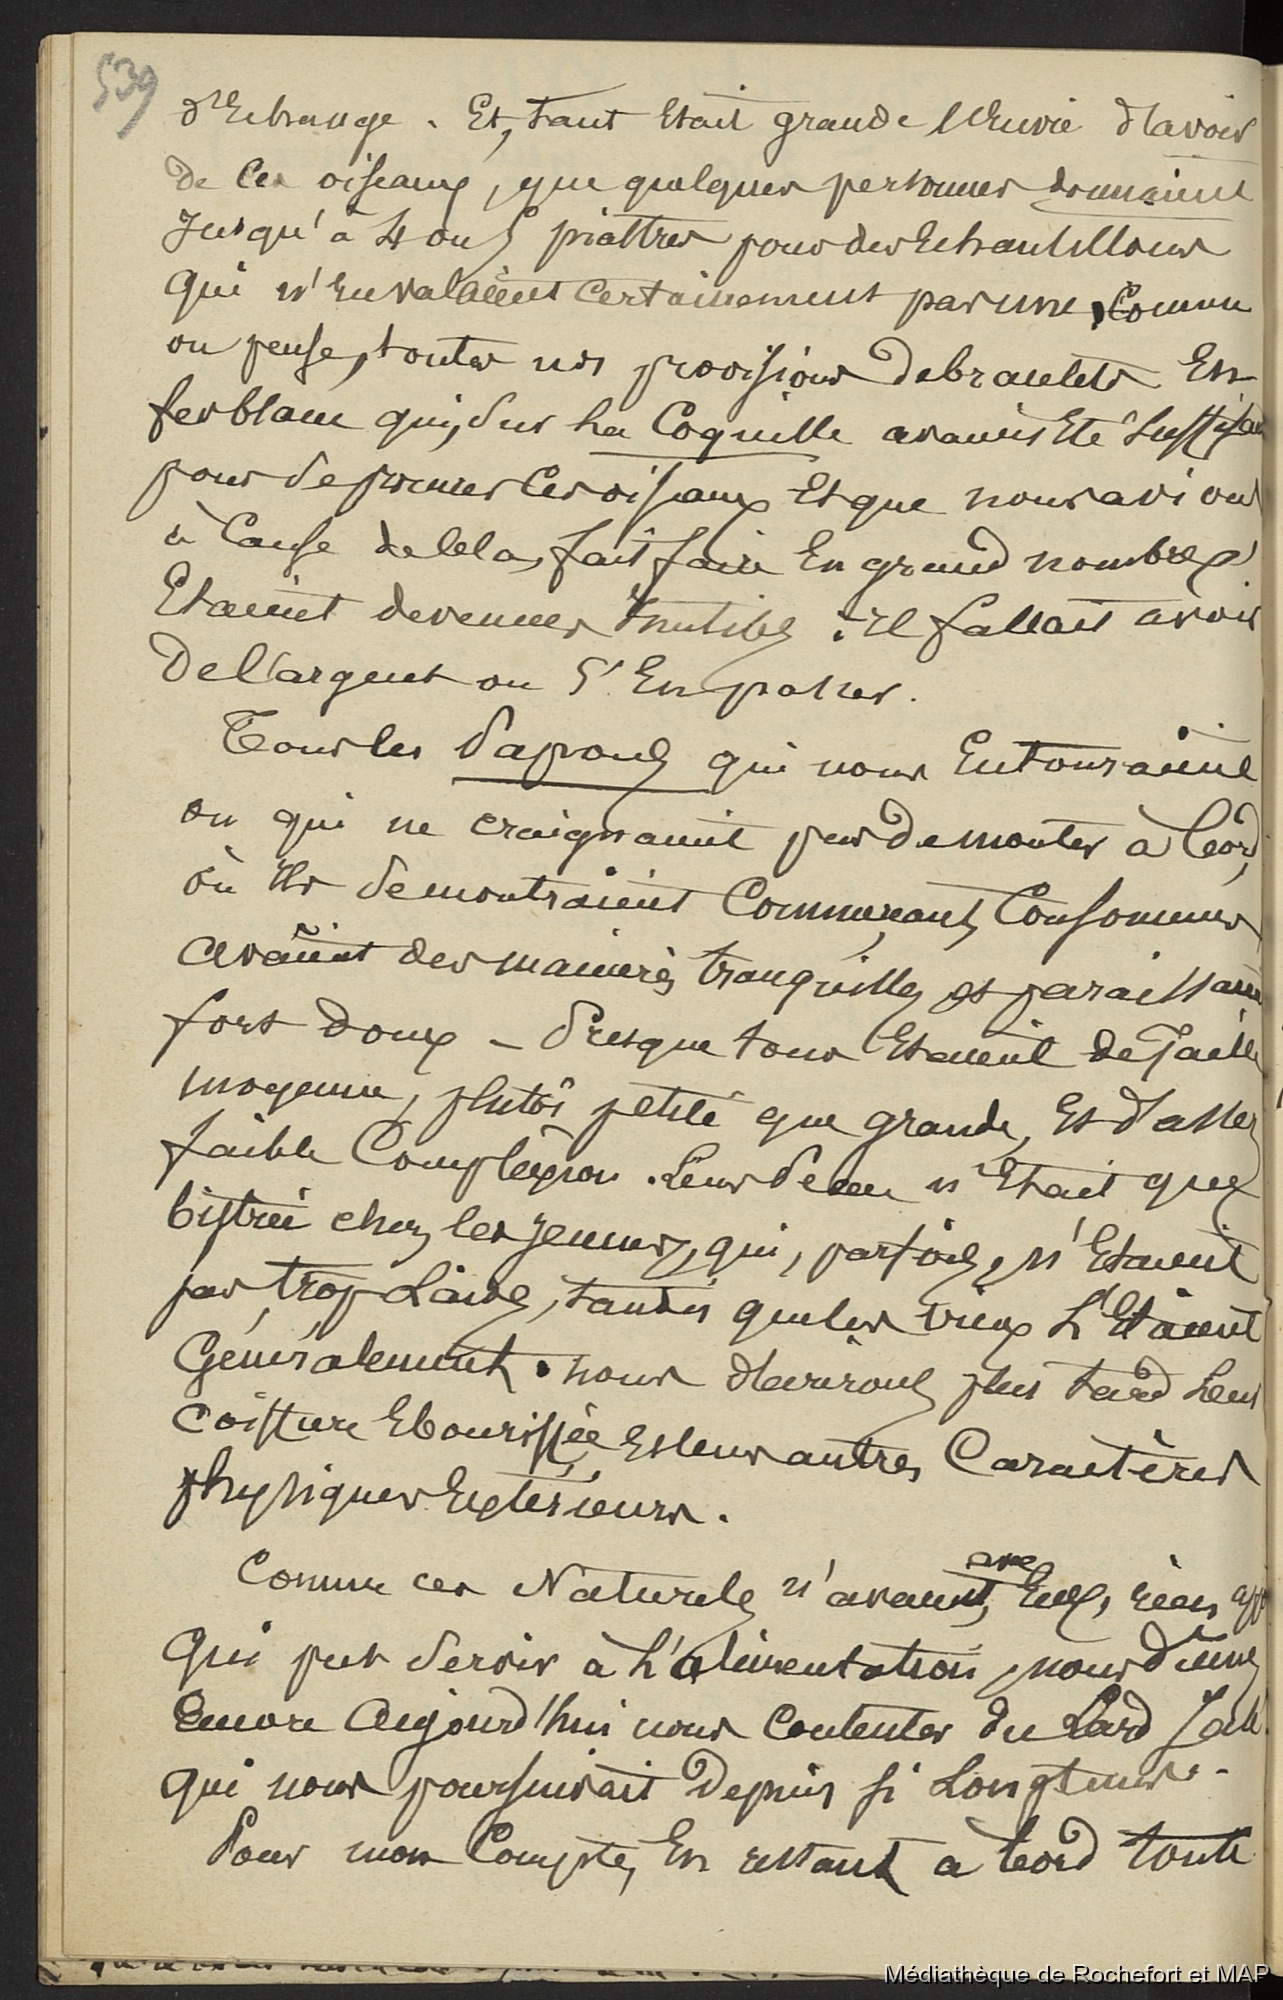 539
d'Echange. Et, tant Etait grande l'Envie d'avoir
de Ces oiseaux, que quelques personnes donnaient
Jusqu'à 4 ou 5 piastres pour des Echantillons
qui n'En valaient Certainement pas une, Comme
on pense, toutes nos provisions de bracelets En
ferblanc qui, sur La Coquille avaient Eté Suffisant
pour Se procurer Ces oiseaux Et que nous avions
à Cause de Cela, fait faire En grand nombre,
Etaient devenues Inutiles ; Il fallait avoir
De l'argent ou S'En passer.
Tous les Papous qui nous Entouraient
ou qui ne craignaient pas De monter à bord,
où Ils Se montraient Commerçants Consommés,
avaient des manières tranquilles et paraissaient
fort Doux - Presque tous Etaient de Taille
moyenne, plutôt petite que grande, Et d'assez
faible Complexion. Leur Peau n'Etait que
bistrée chez les Jeunes, qui, parfois, n'Etaient
pas trop Laids, tandis que les vieux L'Etaient
Généralement. nous Décrirons plus tard Leur
Coiffure Ebouriffée Et leurs autres Caractères
physiques Extérieurs.
Comme ces Naturels n'avaient, avec Eux, rien
qui put Servir à L'alimentation, nous Dûmes
Encore Aujourd'hui nous Contenter du Lard Salé
qui nous poursuivait Depuis si Longtems. -
Pour mon Compte, En restant à bord toute
Médiathèque de Rochefort et MAP